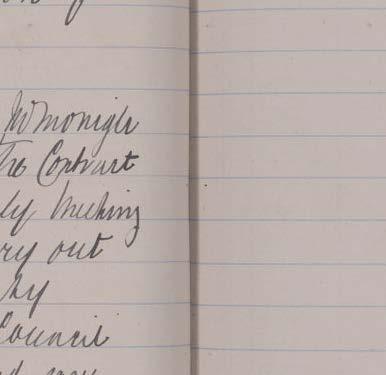 McMonigle
The Contract
ly meeting
ry out
by
Council